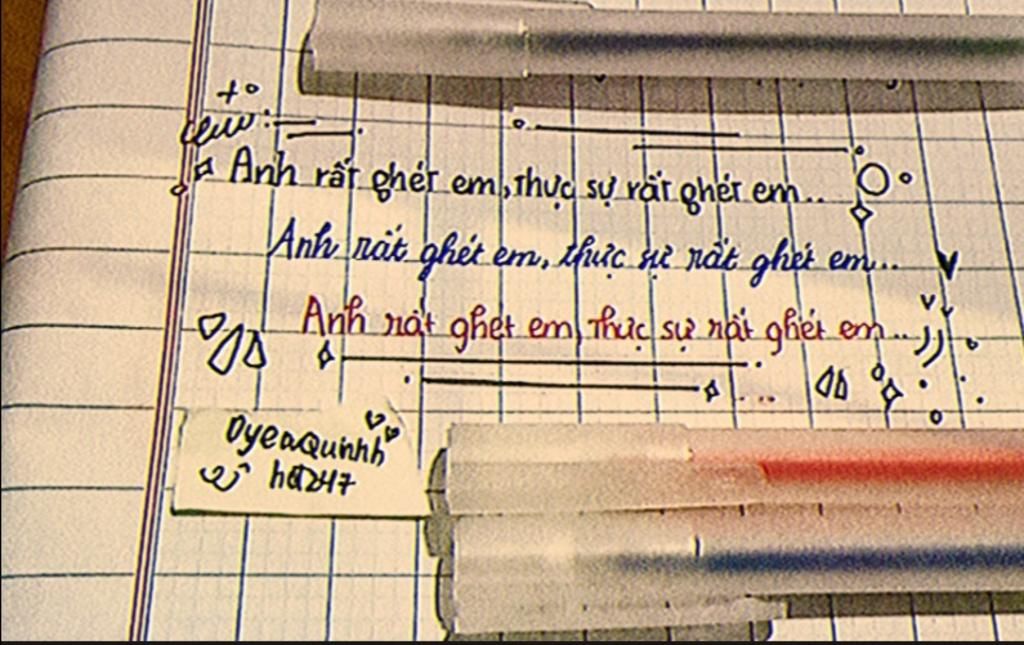 Anh rất ghét em, thực sự rất ghét em..
Anh rất ghét em, thực sự rất ghét em...
Anh rất ghét em, thực sự rất ghét em...